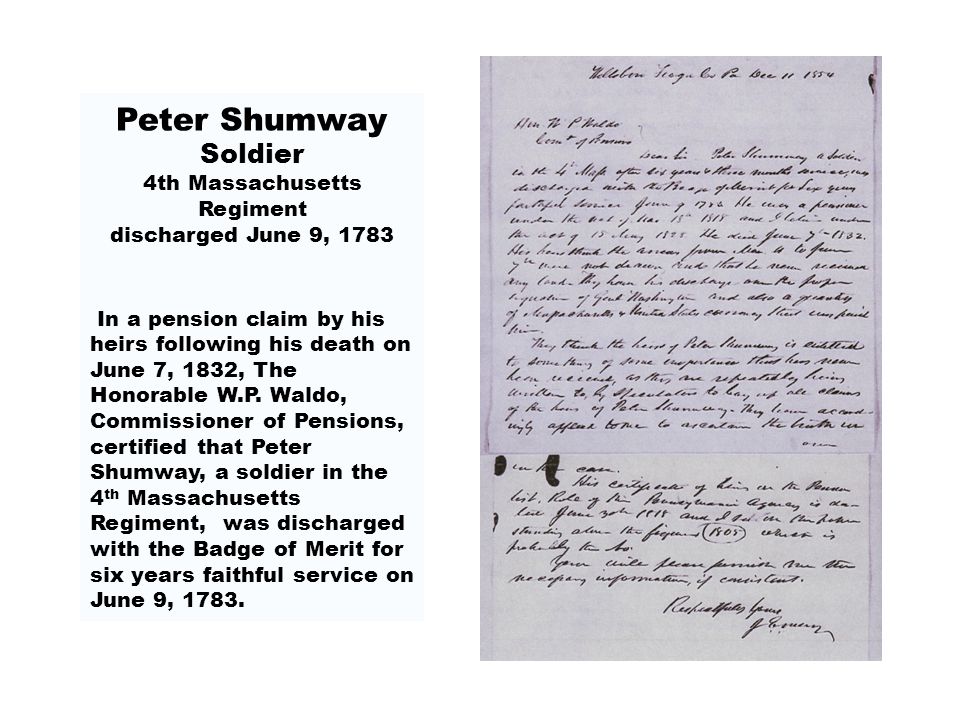 Peter Shumway
Soldier
4th Massachusetts
Regiment
discharged June 9, 1783
In a pension claim by his
heirs following his death on
June 7, 1832, The
Honorable W.P. Waldo,
Commissioner of Pensions,
certified that Peter
Shumway, a soldier in the
4th Massachusetts
Regiment, was discharged
with the Badge of Merit for
six years faithful service on
June 9, 1783.
Wellsboro Tioga Co Pa Dec 11 1854
Hon P Waldo
Dear Sir Peter Shumway a Soldier
in the 4th Mass after six years & three months service, was
discharged with the Badge of Merit for Six years
faithful service June 9 1783 He was a pensioner
under the act of Mar 18th 1818 and under
the act of 15 May 1828. He died June 7th 1832.
His heirs think the from Mar to June
7th were not drawn and that he never received
any land. They have his discharge over the proper
signature of Genl Washington and also a quantity
of Massachusetts & United States currency
him.
They think the heirs of Peter Shumway is entitled
to something of some importance that has never
been received, as they are repeatedly being
written to, by Speculators to buy up all claims
of the heirs of Peter Shumway. They have accord-
ingly applied to me to ascertain the truth in
in the case.
His certificate of being on the Pension
list, Role of the Pennsylvania Agency is da-
ted June 30th 1818 and I see on the paper
standing alone the figures 1805 which is
probably the No.
You will please furnish me the
necessary information, if consistent.
Respectfully Yours